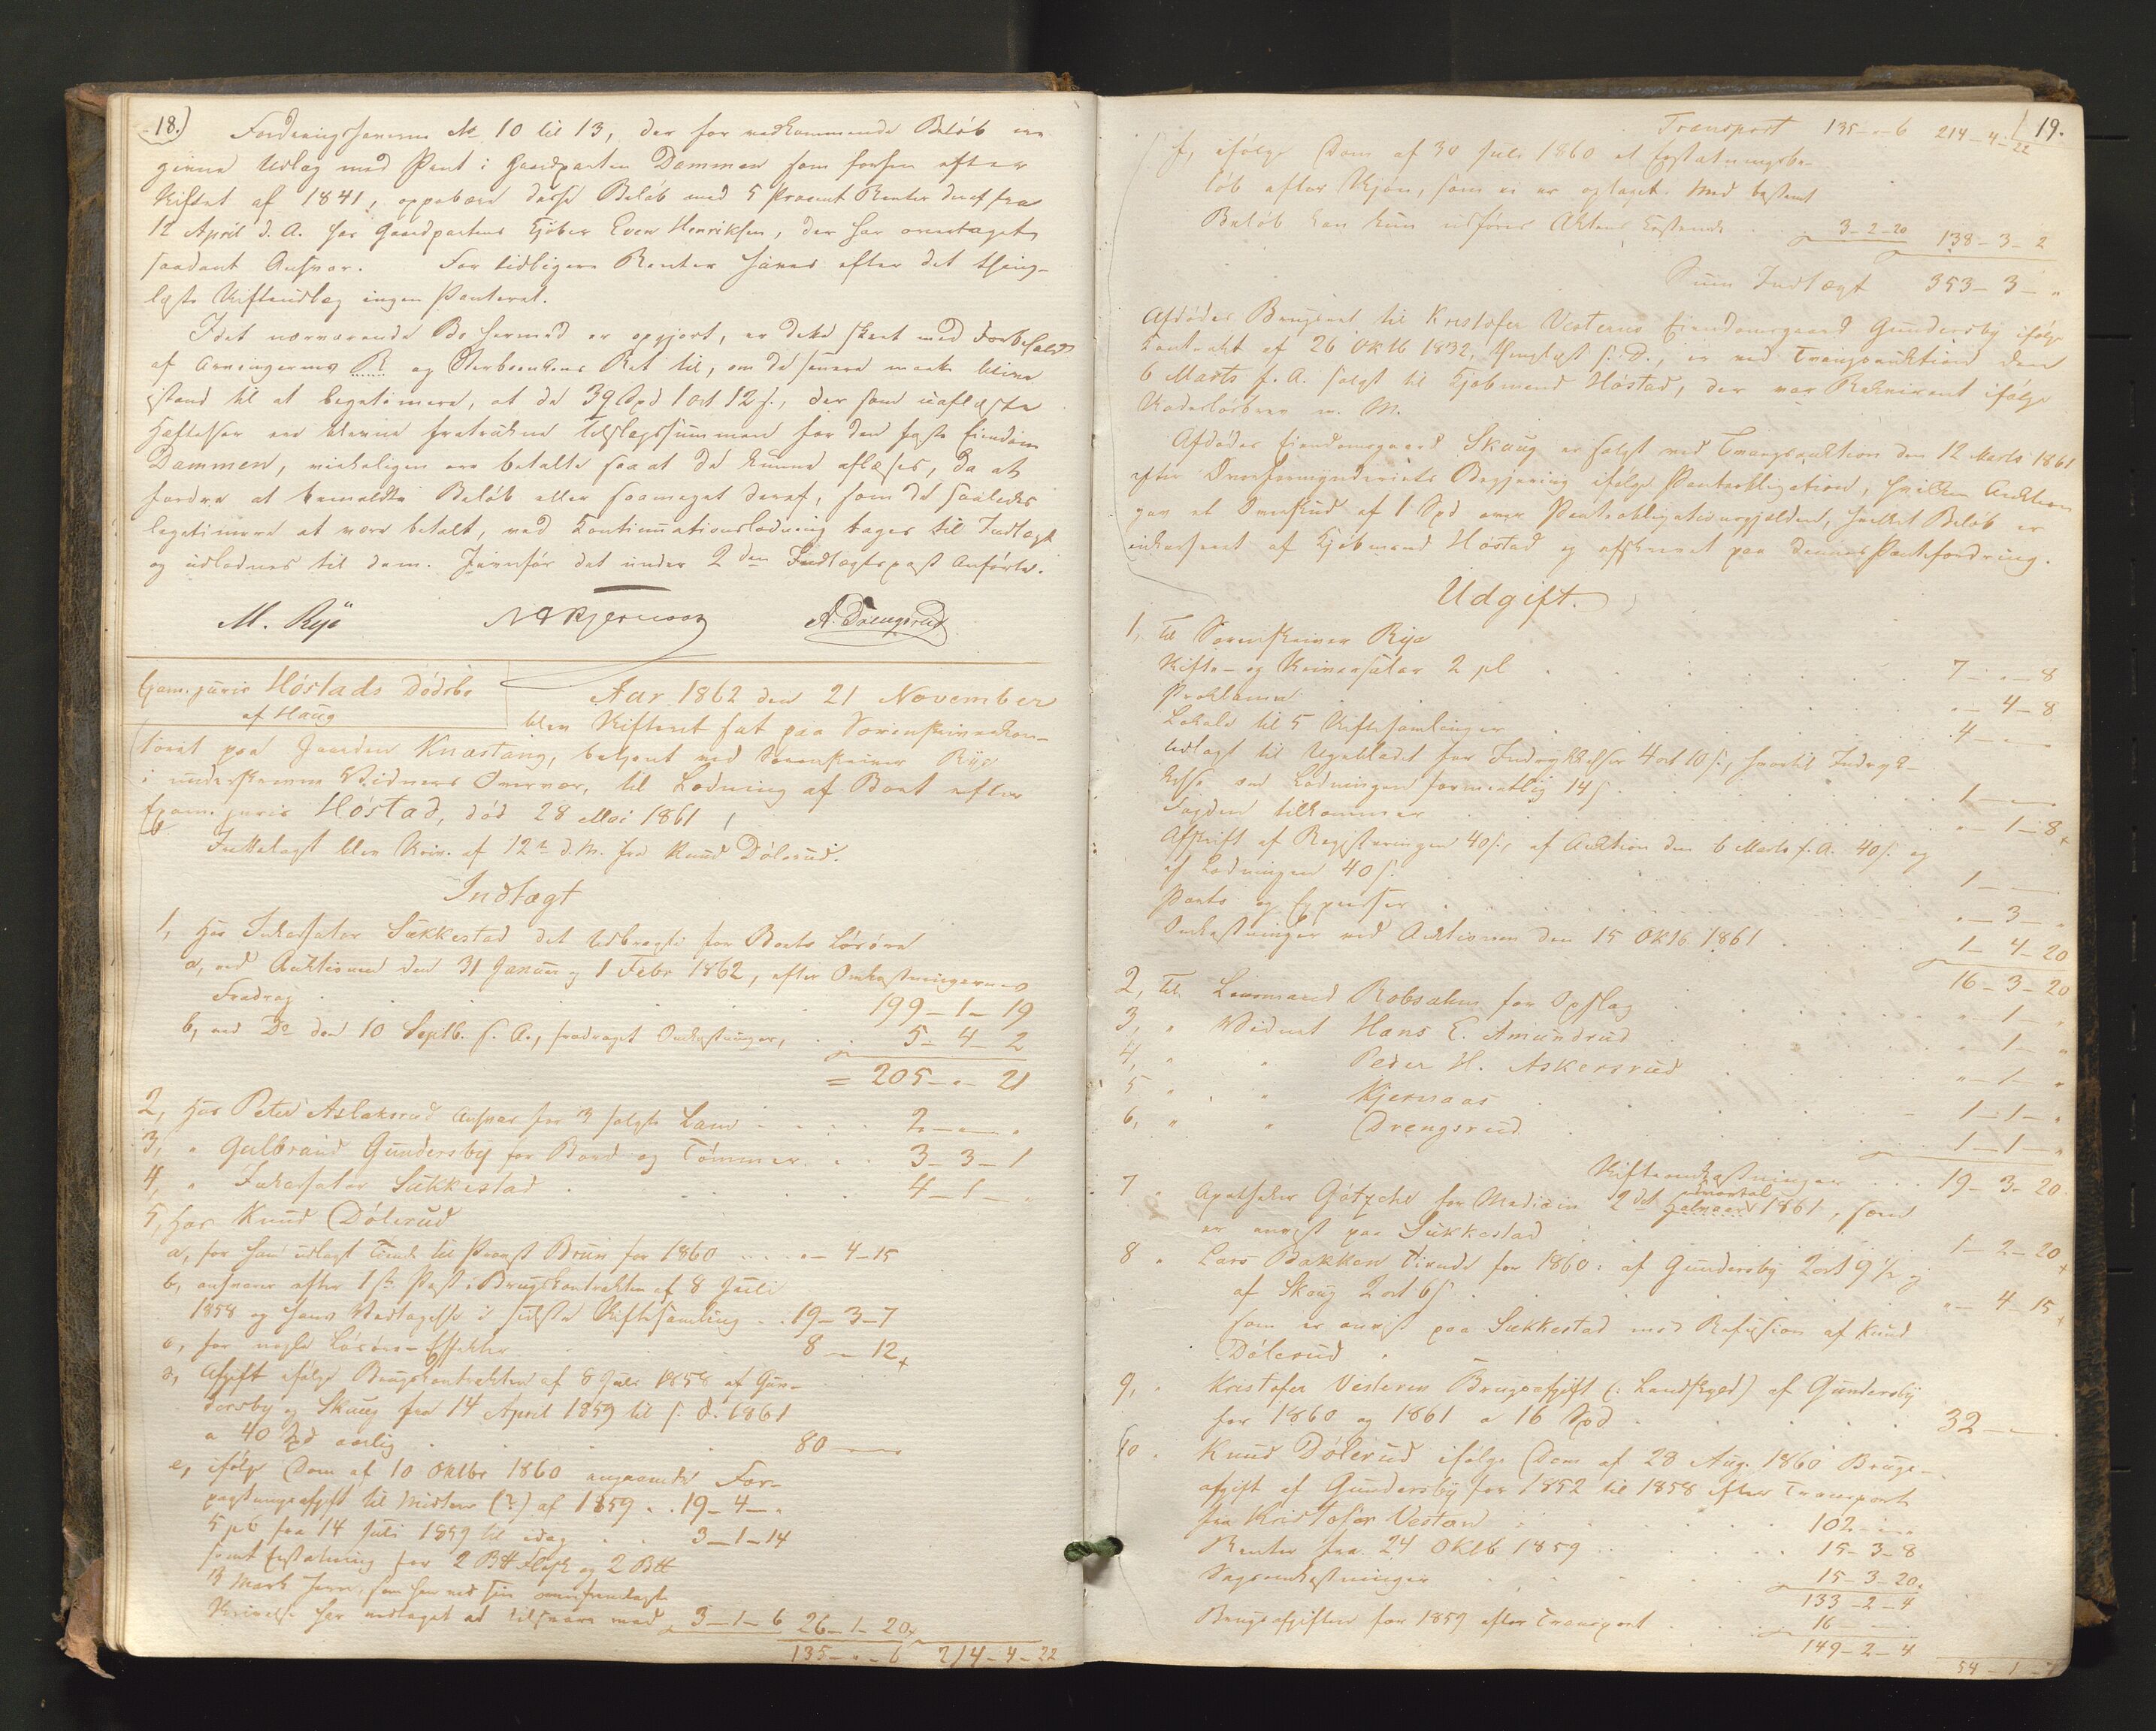 18.)
Fordringshaverne No 10 til 13, der for vedkommende Beløb ere
givne Udlag med Pant i Gaardparten Dammen som forhen efter
Skiftet af 1841, oppebærer disse Beløb med 5 Procent Renter deraf fra
12 April d. A. hos Gaardpartens Kjøber Even Henriksen, der har overtaget
saadant Ansvar. For tidligere Renter haves efter det thing-
læste Skifteudlæg ingen Panteret.
Idet nærværende Bo hermed er opgjort, er dette skeet med Forbehold
af Arvingernes R og Sterboenkens Ret til, om de senere maatte blive
istand til at legitimere, at de 39 Spd 1 ort 12 s., der som uaflæste
Hæftelser ere blevne fratrukne Tilslagssummen for den faste Eiendom
Dammen, virkeligen ere betalte saa at de kunne aflæses, da at
fordre at bemeldte Beløb eller saameget deraf, som de saaledes
legitimere at være betalt, ved Continuationslodning tages til Indtægt
og udloddes til dem. Jævnfør det under 2den Indtægtspost Anførte.
M. Rye NAKjernaas A. Drengsrud
Exam. juris Høstads Dødsbo
af Haug
Aar 1862 den 21 November
blev Skifteret sat paa Sorenskriverkon-
toret paa Gaarden Knæstang, betjent ved Sorenskriver Rye
i underskrevne Vidners Overvær, til Lodning af Boet efter
Exam. juris Høstad, død 28 Mai 1861
Fremlagt blev Skriv. af 12te d. M. fra Knud Dølerud.
Indtægt
1, Hos Inkassator Sukkestad det Udbragte for Boets Løsøre
a, ved Auktionen den 31 Januar og 1 Febr 1862, efter Omkostningernes
Fradrag . . . 199-1-19
b, ved Do den 10 Septb. s. A., fradraget Omkostninger, . . 5-4-2
= 205-"-21
2, Hos Peter Aslaksrud Ansvar for 3 solgte Lam . . . . 2-"-"
3, " Gulbrand Gundersby for Bord og Tømmer . . . 3-3-1
4, " Inkassator Sukkestad . . . 4-1-"
5, Hos Knud Dølerud
a, for ham udlagt Tiende til Provst Brun for 1860 . . . "-4-15
b, ansvarer efter 1ste Post i Brugskontrakten af 8 Juli
1858 og hans Vedtagelse i sidste Skiftesamling . . 19-3-7
c, for nogle Løsøre-Effekter . . . 8-"-12
d, Afgift ifølge Brugskontrakten af 8 Juli 1858 af Gun-
dersby og Skaug fra 14 April 1859 til s. D. 1861
a 40 Spd aarlig . . . 80-"-"
e, ifølge Dom af 10 Oktbr 1860 angaaende For-
pagtningsafgift til (?) af 1859 . . 19-4-"
5 pC fra 14 Juli 1859 til idag . . 3-1-14
samt Erstatning for 2 B Flesk og 2 B
13 Mark , som han ved sin ovenfremlagte
Skrivelse har vedtaget at tilsvare med 3-1-6 26-1-20
135-"-6 214-4-22
19.
Transport 135-"-6 214-4-22
f, ifølge Dom af 30 Juli 1860 et Erstatningsbe-
løb efter Skjøn, som ei er optaget. Med bestemt
Beløb kan kun udføres Aktens Kostende . . . 3-2-20 138-3-2
Sum Indtægt 353-3-"
Afdødes Brugsret til Kristofer Vesterns Eiendomsgaard Gundersby ifølge
Kontrakt af 26 Oktb 1832, thinglæst s. D., er ved Tvangsauktion den
6 Marts f. A. solgt til Kjøbmand Høstad, der var Rekvirent ifølge
m. M.
Afdødes Eiendomsgaard Skaug er solgt ved Tvangsauktion den 12 Marts 1861
efter Overformynderiets Begjering ifølge Panteobligation, hvilken Auktion
gav et Overskud af 1 Spd over Panteobligationsgjælden, hvilket Beløb er
inkasseret af Kjøbmand Høstad og afskrevet paa dennes Pantefordring.
Udgift.
1, Til Sorenskriver Rye
Skifte- og Skriversalær 2 pC . . . 7-"-8
Proklama . . . "-4-8
Lokale til 5 Skiftesamlinger . . . 4-"-"
Udlagt til Ugebladet for Indrykkelser 4 ort 10 s., hvortil Indryk-
kelse ved Lodningen formentlig 14 s . . . 1-"-"
Fogden tilkommer . . . "-1-8
Afskrift af Registreringen 40 s., af Auktion den 6 Marts f. A. 40 s. og
af Lodningen 40 s. . . . 1-"-"
Porto og Expenser . . . "-3-"
Omkostninger ved Auktionen den 15 Oktb 1861 . . . 1-4-20
16-3-20
2, Til Lensmand Robsahm for Opslag . . . "-1-"
3, " Vidnet Hans E. Amundrud . . . "-1-"
4, " " Peder H. Askersrud . . . "-1-"
5 " " Kjernaas . . . 1-1-"
6, " " Drengsrud . . . 1-1-"
Skifteomkostninger . . . 19-3-20
7 " Apotheker Götzche for Medicin 2det Halvaar 1861, som
er anvist paa Sukkestad . . . 1-2-20
8 " Lars Bakken Tiende for 1860: af Gundersby 2 ort 9 1/2 og
af Skaug 2 ort 6 s . . . "-4-15
som er anvist paa Sukkestad mod Refusion af Knud
Dølerud .
9, " Kristofer Vesteren Brugsafgift (: Landskyld) af Gundersby
for 1860 og 1861 a 16 Spd . . . 32-"-"
10 " Knud Dølerud ifølge Dom af 28 Aug. 1860 Brugs-
afgift af Gundersby for 1852 til 1858 efter Transport
fra Kristofer Vesteren . . . 102-"-"
Renter fra 24 Oktb 1859 . . . 15-3-8
Sagsomkostninger . . . 15-3-20
133-2-4
Brugsafgiften for 1859 efter Transport . . . 16-"-"
149-2-4
54-1-7